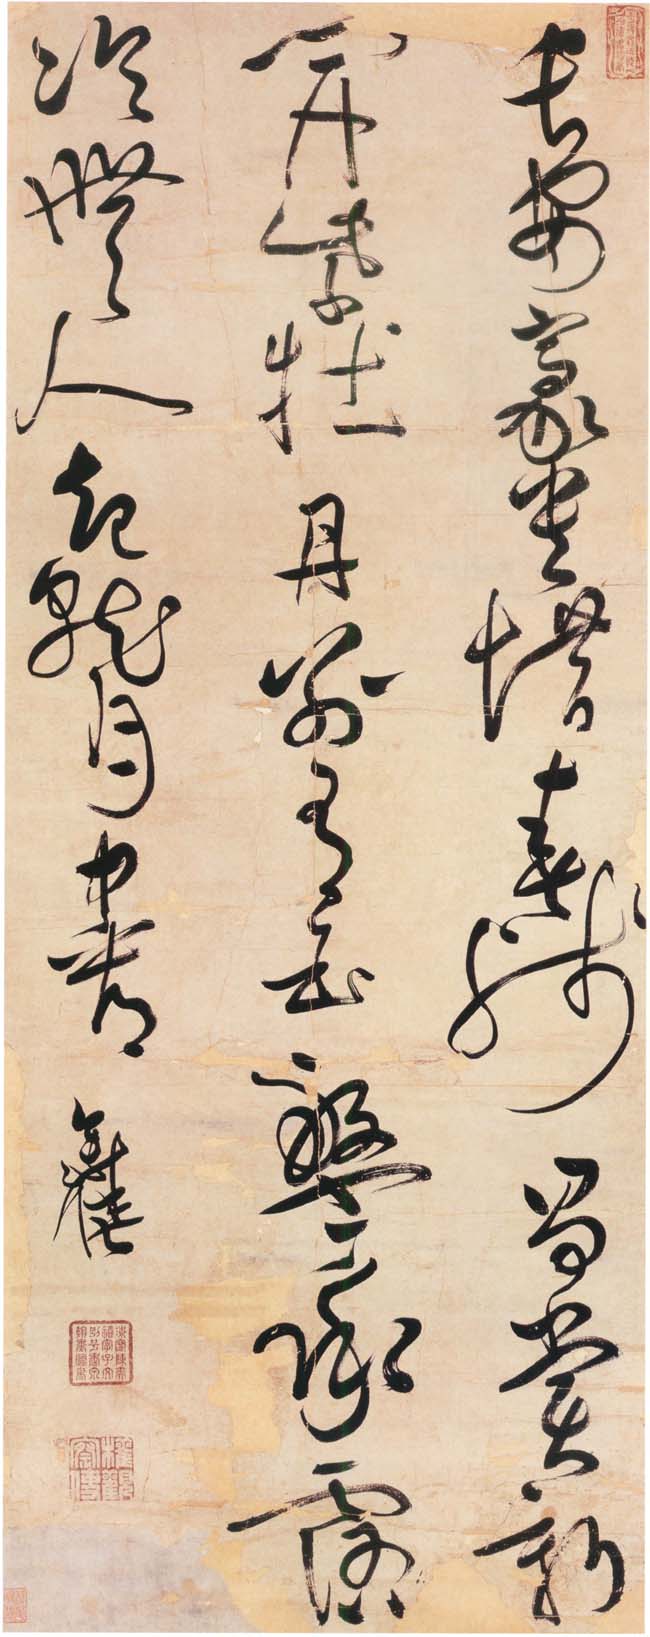 長安豪貴惜春殘爭賞新
開紫牡丹別有玉盤承露
冷無人起就月中看